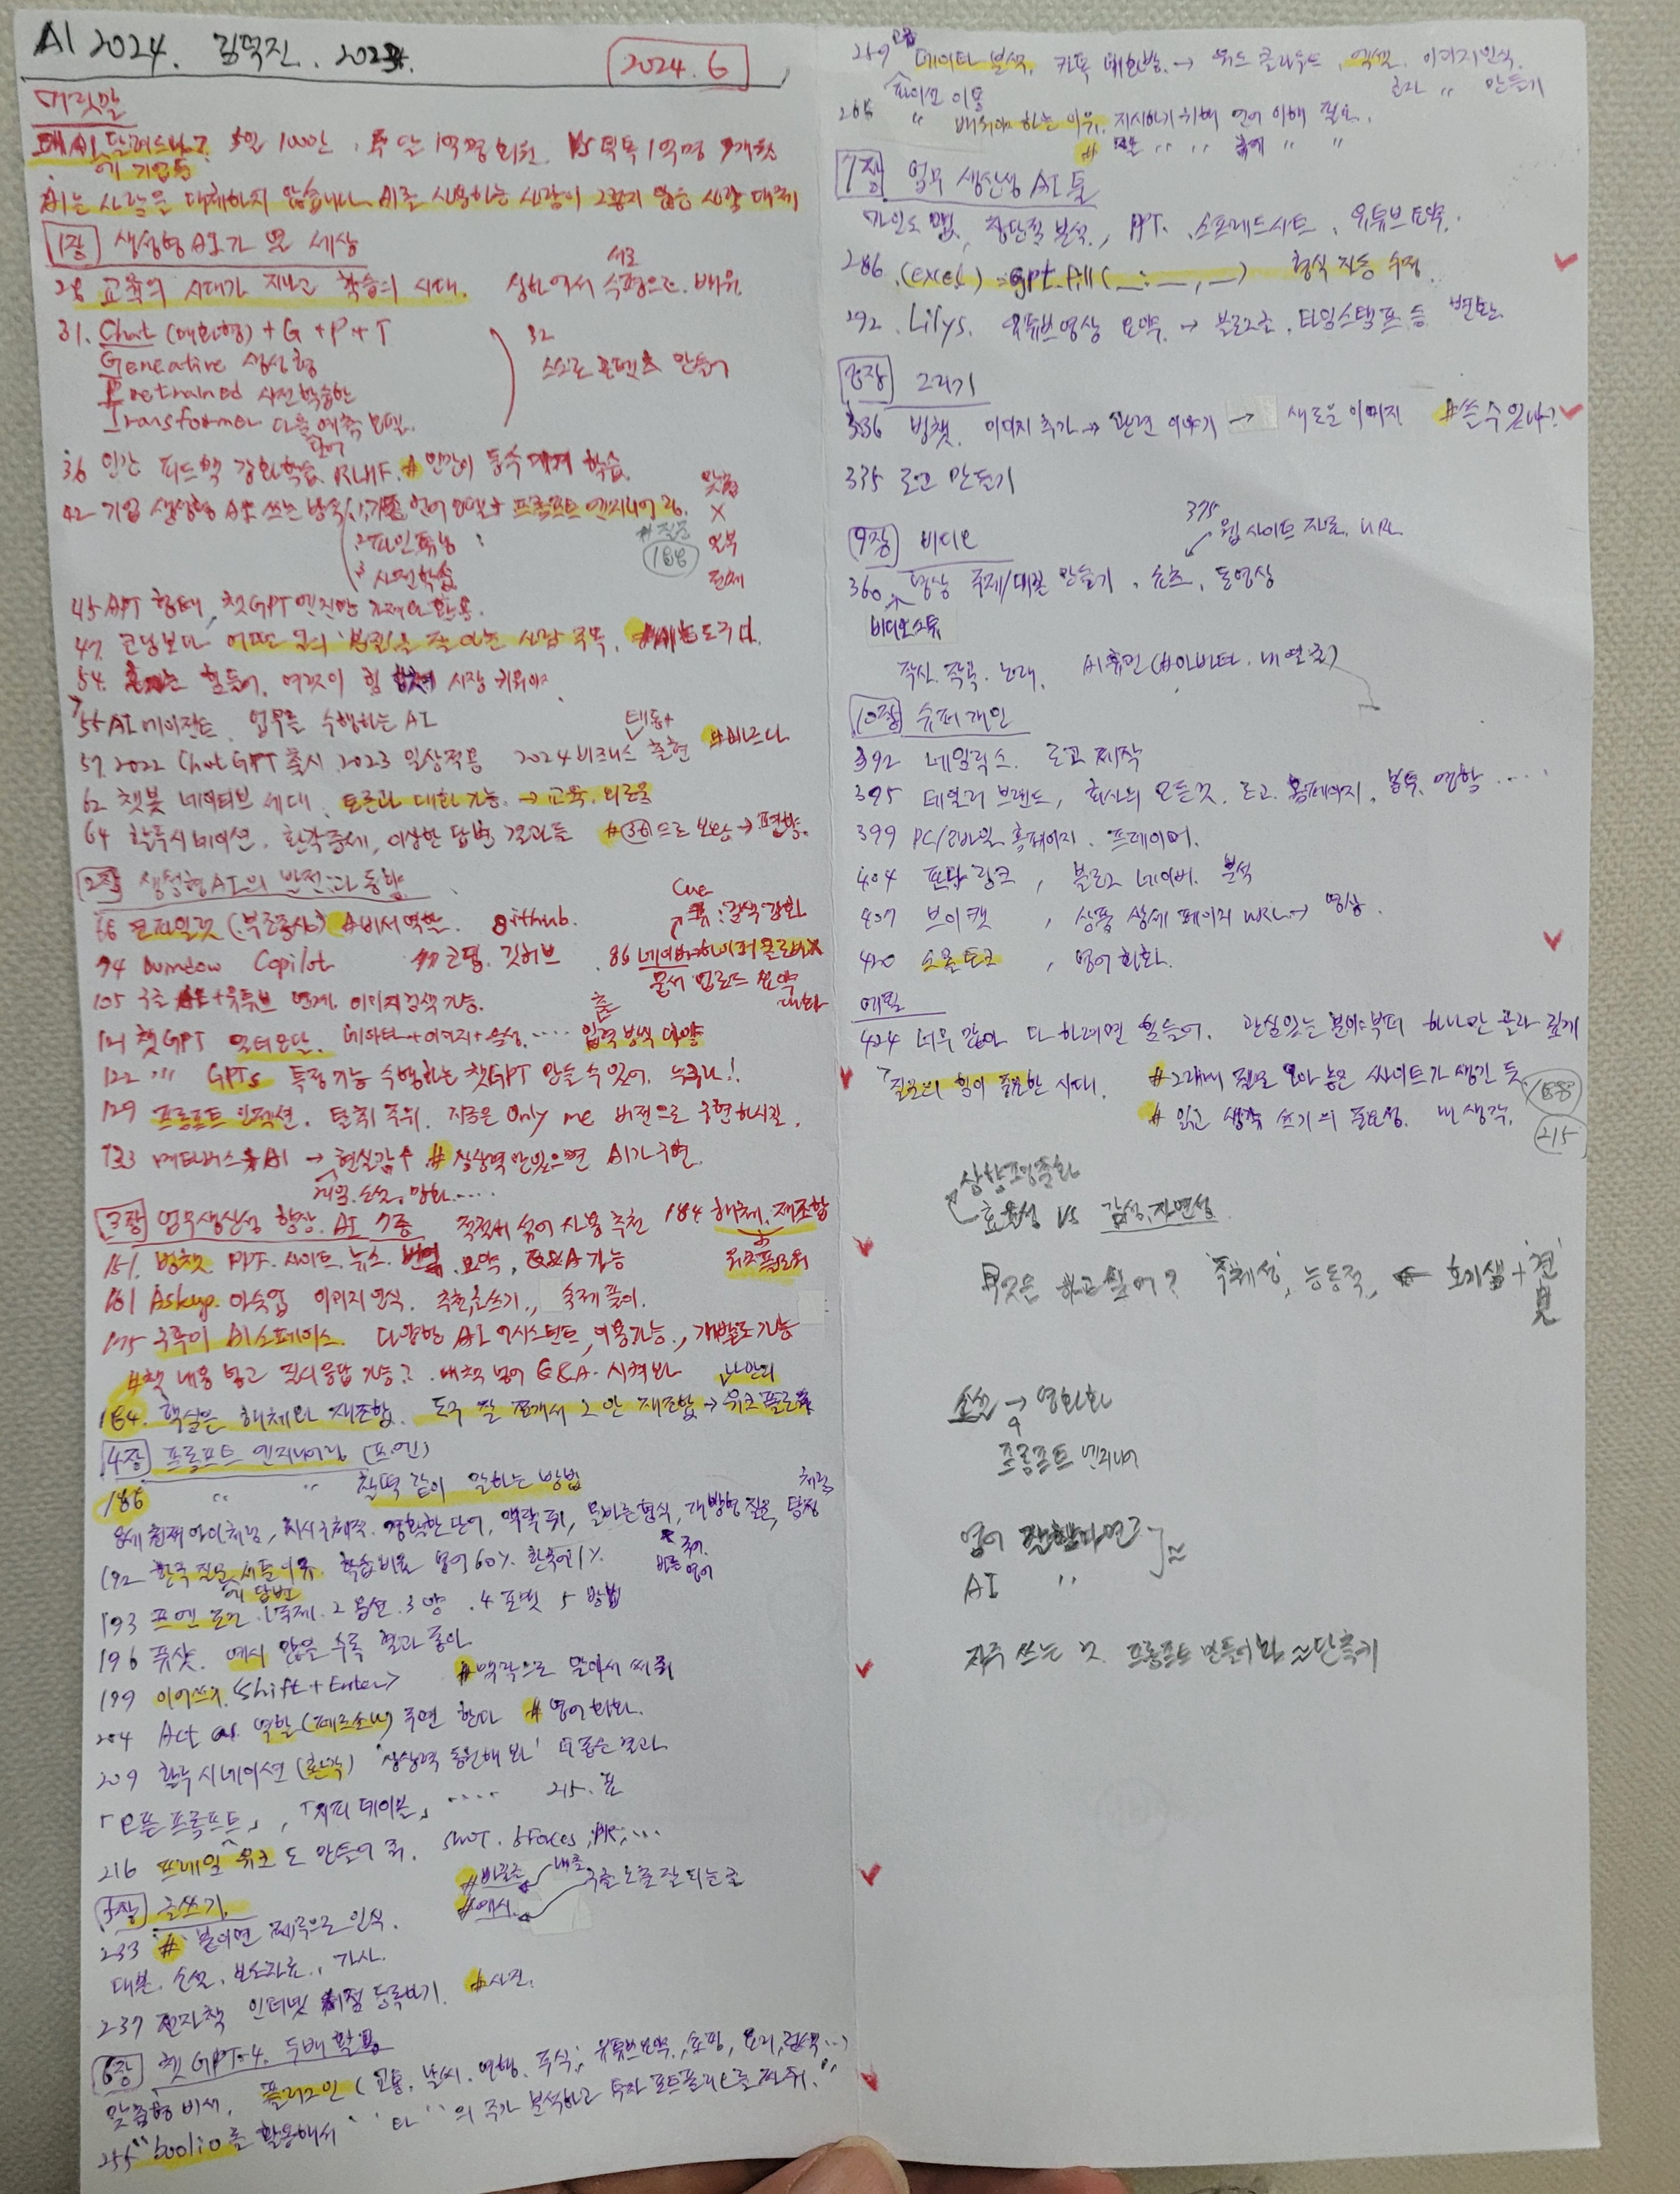 AI 2024. 김덕진. 2023.
2024.6
머릿말
왜 AI 달려드나? 5일 100만, 두 달 1억명 회원. VS 틱톡 1억명 9개월
에 기업들
AI는 사람을 대체하지 않습니다. AI를 사용하는 사람이 그렇지 않은 사람 대체
1장 생성형 AI가 온 세상
28 교육의 시대가 지나고 학습의 시대. 상하에서 수평으로. 배움
서로
31. Chat (대화형) + G + P + T
Generative 생성형
Pretrained 사전학습한
Transformer 다음 예측 모델.
단어
32
스스로 콘텐츠 만들기
36 인간 피드백 강화학습 RLHF. # 인간이 계속 학습.
42 기업 생성형 AI 쓰는 방식 1. 기존 언어 모델 + 프롬프트 엔지니어링.
2 파인튜닝
3 사전학습
맞춤
X
일부
전체
#질문
188
45 API 형태, 챗GPT 엔진만 가져와 활용.
47. 코딩보다 어떤 일의 본질을 잘 아는 사람 주목. #AI는 도구다.
54. 혼자는 힘들어. 여럿이 힘 합쳐 시장 키워야.
55 AI 에이전트. 업무를 수행하는 AI
57. 2022 ChatGPT 출시. 2023 일상적용 2024 비즈니스 출현 #비즈니
62 챗봇 네이티브 세대. 토론과 대화 가능. → 교육, 외로움
64 할루시네이션. 환각증세, 이상한 답변 결과들 #(36)으로 보완 → 편향.
2장 생성형 AI의 발전과 동향
68 코파일럿 (부조종사) #비서 역할. github.
94 window Copilot 77 코딩. 깃허브
Cue
큐: 검색 강화
86 네이버 하이퍼클로바X
문서 업로드 요약
대화
105 구글 + 유튜브 연계. 이미지 검색 가능.
121 챗GPT 멀티모달. 데이터 + 이미지 + 음성..... 입력 방식 다양
출
122 〃 GPTs 특정기능 수행하는 챗GPT 만들 수 있어. 누구나!
129 프롬프트 인젝션. 탈취 주의. 지금은 Only me 버전으로 구현하시길.
133 메타버스 AI → 현실감↑ # 상상력만 있으면 AI가 구현.
게임. 소설. 만화.....
3장 업무생산성 향상. AI 7종 적절히 섞어 사용 추천 184 해체, 재조합
워크플로위
151. 빙챗. PPT. 사이트. 뉴스. 번역. 요약, Q&A 가능
161 Askup. 아숙업 이미지 인식. 추천, 글쓰기., 숙제 풀이.
175 구루미 AI 스페이스. 다양한 AI 어시스턴트, 이용가능., 개발도 가능
#책 내용 넣고 질의응답 가능?. 내 책 넣어 Q&A. 시켜봐
나만의
184. 핵심은 해체와 재조합. 도구 잘 쪼개서 그 안 재조합 → 워크플로우
4장 프롬프트 엔지니어링 (프엔)
186 〃 〃 찰떡같이 말하는 방법
8세 천재 아이처럼, 지시 구체적. 정확한 단어, 맥락 줘, 올바른 형식, 개방형 질문,
192 한국 질문 서툰 이유. 학습비율 영어 60%. 한국어 1%
에 답변
193 프엔 조건. 1주제. 2 옵션. 3 양. 4 포맷 5 방법
196 퓨샷. 예시 많을수록 결과 좋아
199 이어쓰기 <Shift + Enter> #맥락으로 알아서 써줘
204 Act as 역할 (페르소나) 주면 한다 # 영어회화.
209 할루시네이션 (환각) '상상력 동원해 봐' 더 좋은 결과
「오픈 프롬프트」, 「지피테이블」..... 215. 표
216 프레임워크도 만들어 줘. SWOT. 5 Forces, PR,...
5장 글쓰기
#바꿀글
#예시.
내글
구글 노출 잘 되는 글
233 # 붙이면 제목으로 인식.
대본. 소설. 보도자료., 가사.
237 전자책 인터넷 서점 등록하기. #사진.
6장 챗GPT-4. 두배 활용
맞춤형 비서. 플러그인 (교통. 날씨. 여행. 주식; 유튜브요약., 쇼핑, 요리, 검색...)
255 "boolio를 활용해서 의 주가 분석하고 투자 포트폴리오를 짜줘."
259 고급 데이터 분석. 카톡 대화방. → 워드 클라우드, 엑셀. 이미지 인식.
파이썬 이용
글자 〃 만들기
265 〃 배워야 하는 이유. 지시하기 위해 언어 이해 필요.
7장 업무 생산성 AI 툴
마인드 맵. 장단점 분석., PPT. 스프레드시트, 유튜브 요약.
286. (excel) = gpt_fill(_:_,_) 형식 자동 수정
292. Lilys. 유튜브 영상 요약. → 블로그글. 타임스탬프 등 변환.
8장 그리기
336 빙챗. 이미지 추가 → 관련 이야기 → 새로운 이미지 #쓸 수 있나?
335 로고 만들기
9장 비디오
375
웹사이트 자료. URL
360 영상 주제/대본 만들기, 쇼츠, 동영상
비디오스튜
작사. 작곡. 노래. AI휴먼 (아바타, 내 얼굴)
10장 슈퍼개인
392 네임릭스. 로고 제작
395 테일러 브랜드, 회사의 모든것. 로고. 홈페이지. 봉투. 명함....
399 PC/모바일 홈페이지. 프레이머.
404 판다랭크, 블로그 네이버. 분석
407 브이캣, 상품 상세 페이지 URL → 영상.
420 스몰토크, 영어 회화.
에필
424 너무 많아 다 하려면 힘들어. 관심있는 분야부터 하나만 골라 깊게
질문의 힘이 중요한 시대. #그래서 모아 놓은 싸이트가 생긴 듯. 188
# 읽고 생각 쓰기의 필요성. 내 생각. 215
상향평준화
효율성 VS 감성, 자연성
무엇은 하고 싶어? 주체성, 능동적, ← 호기심 + '견'
見
소설 → 영화화
프롬프트 엔지니어
영어 잘한다면
AI 〃
≈
자주 쓰는 것. 프롬프트 만들어 놔 ≈ 단축키